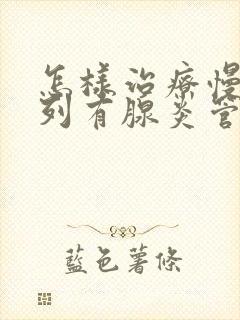 怎樣治療慢
列有腺炎管
藍色薯條